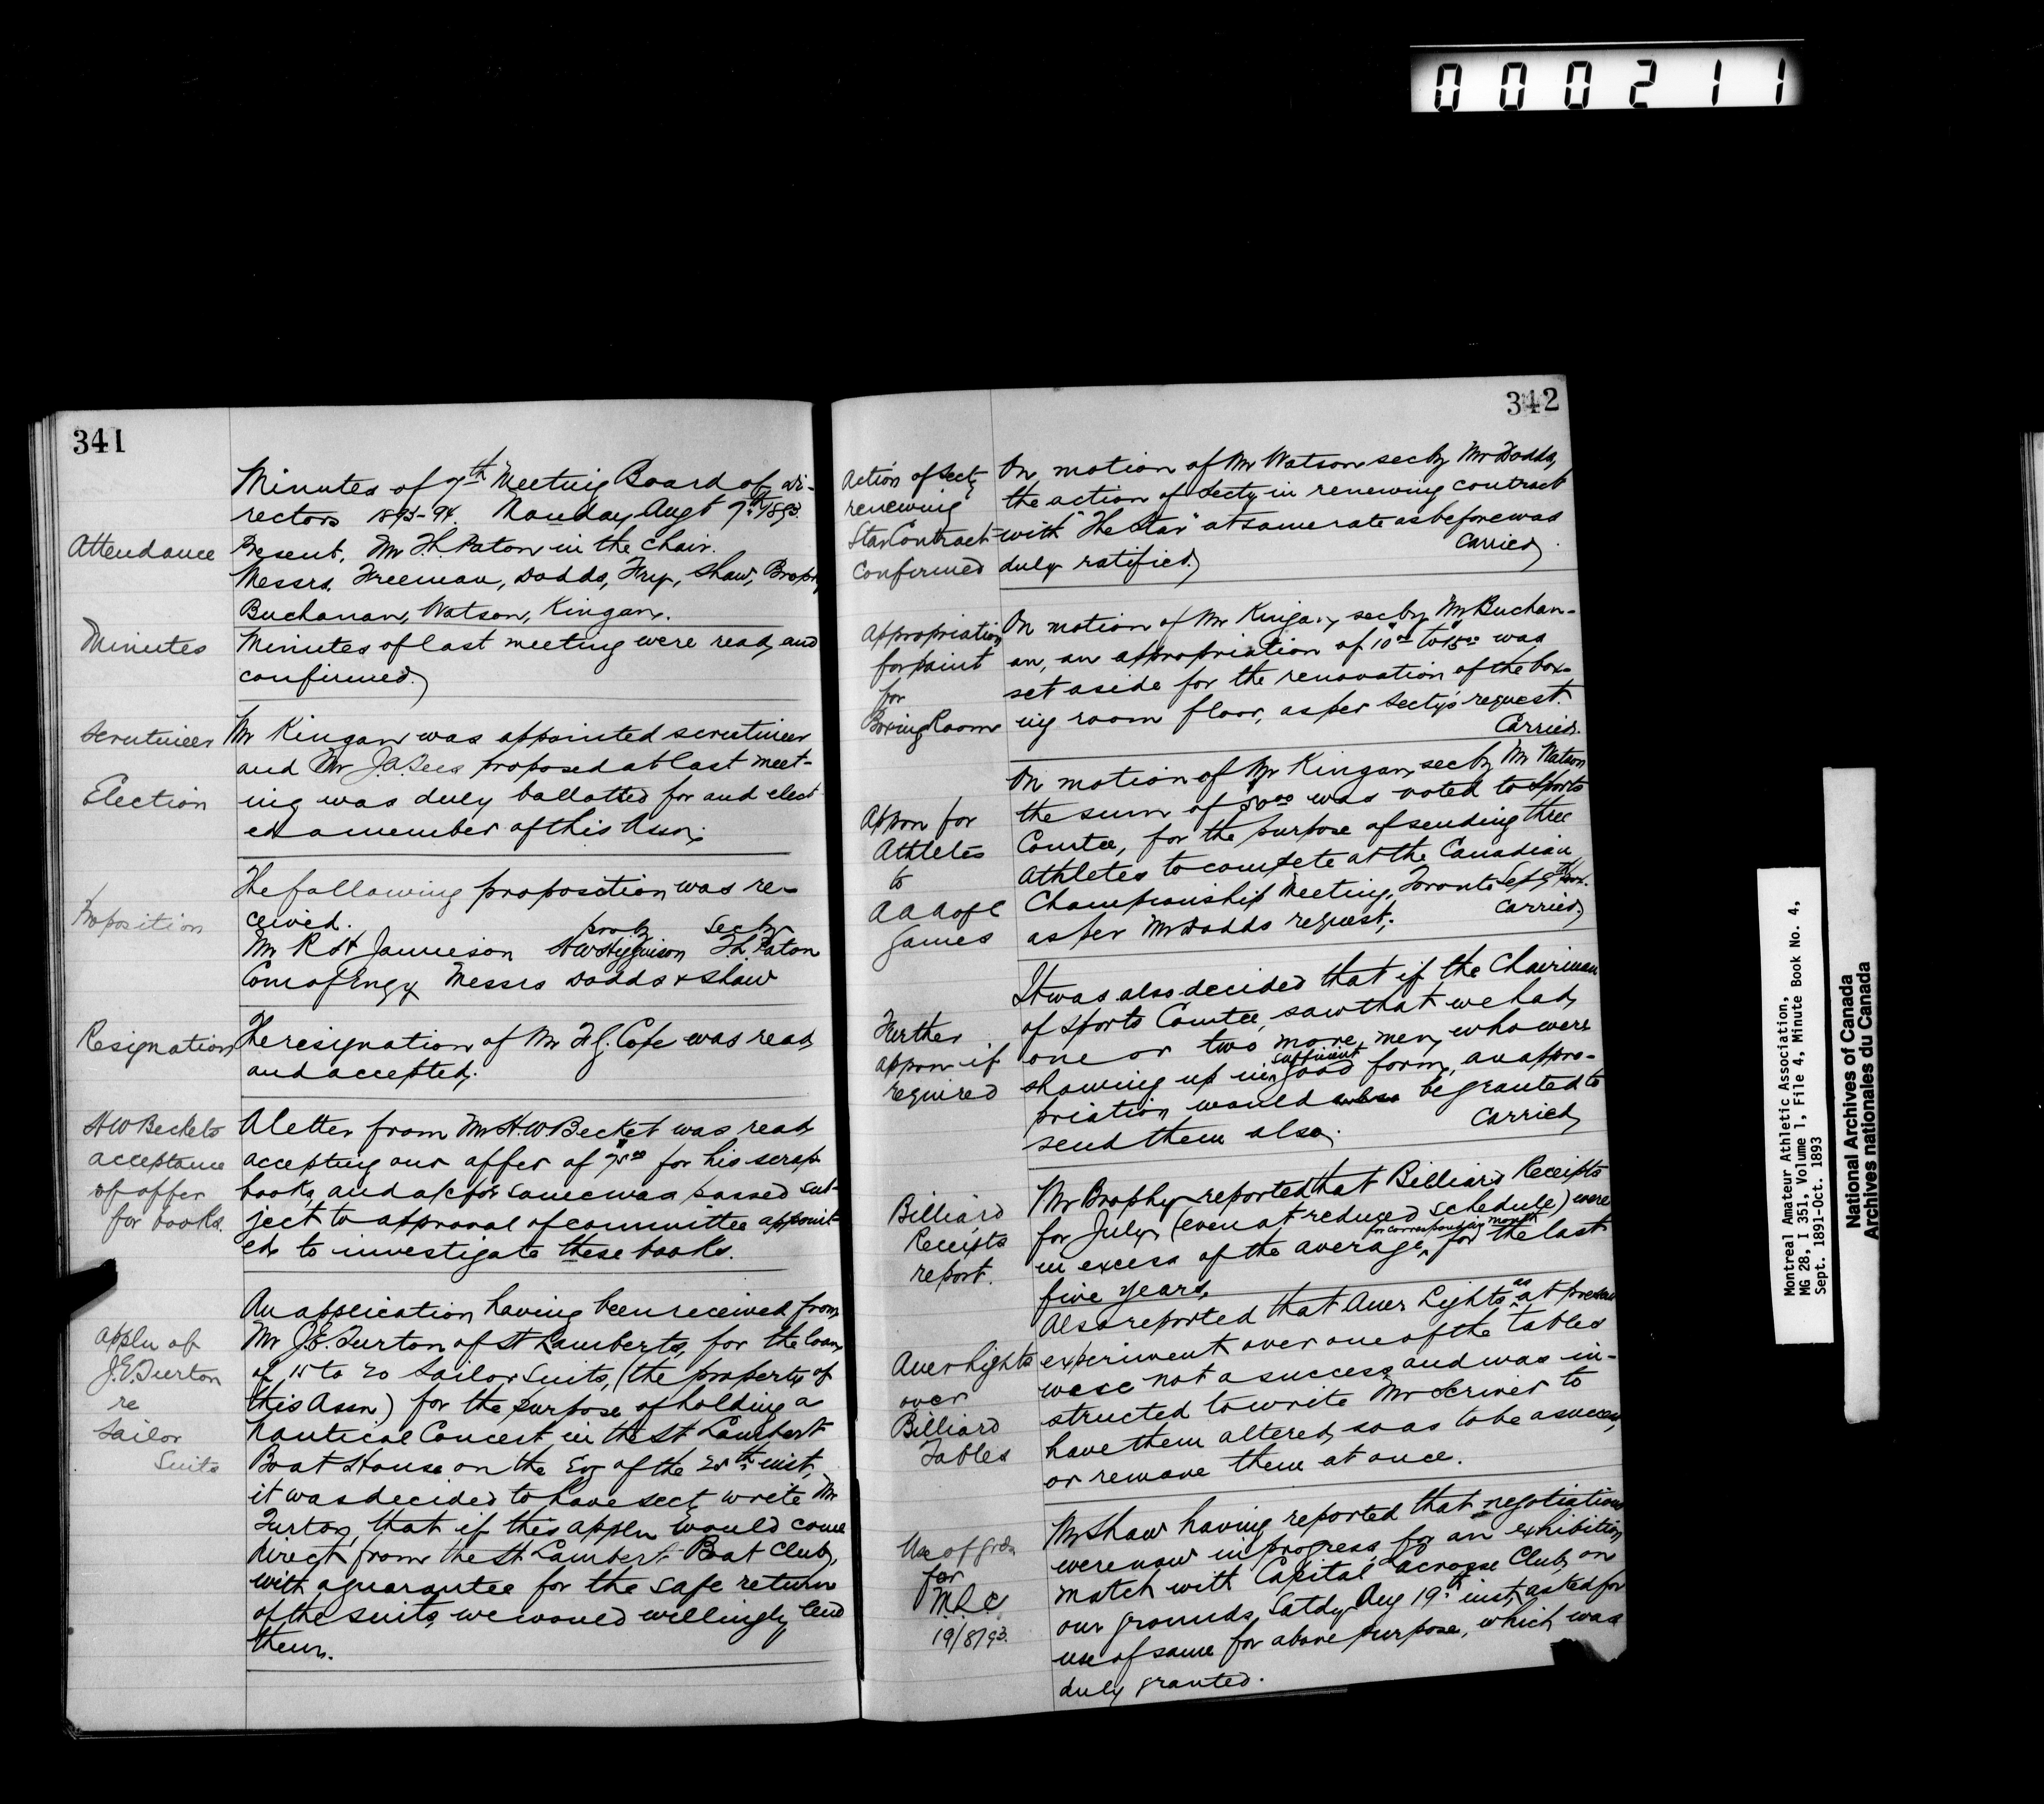 000211
341
Minutes of 7th Meeting Board of Di-
rectors 1893-94. Monday Augt 7th 1893.
Attendance
Present, Mr T.L. Paton in the chair.
Messrs. Freeman, Dodds, Fry, Shaw, Brophy
Buchanan, Watson, Kingan.
Minutes
Minutes of last meeting were read and
confirmed.
Scrutineer
Mr Kingan was appointed scrutineer
and Mr J.A. proposed at last meet-
Election
ing was duly ballotted for and elect
ed a member of this Assn.
The following proposition was re-
Proposition
ceived.
prop by Sec by
Mr R H Jamieson H W Higginson T.L. Paton
Com of Enqy Messrs Dodds & Shaw
Resignation
The resignation of Mr F.G. Cope was read
and accepted.
H W Beckets
acceptance
of offer
for books.
A letter from Mr H.W Becket was read
accepting our offer of $75.00 for his scrap
books, and a/c for same was passed sub-
ject to approval of committee appoint-
ed to investigate these books.
Appln of
J.E. Turton
re
Sailor
Suits
An application having been received from
Mr J.E. Turton of St Lamberts, for the loan
of 15 to 20 Sailor Suits, (the property of
this Assn) for the purpose of holding a
Nautical Concert in the St Lambert
Boat House on the Evg of the 25th inst,
it was decided to have secty write Mr
Turton, that if this appln would come
direct from the St Lambert Boat Club,
with a guarantee for the safe return
of the suits, we would willingly lend
them.
342
Action of Secty
renewing
Star Contract
Confirmed
On motion of Mr Watson sec by Mr Dodds,
the action of Secty in renewing contract
with "The Star" at same rate as before was
duly ratified.
Carried.
Appropriation
for paint
for
Boxing Room
On motion of Mr Kingan, sec by Mr Buchan-
an, an appropriation of $10.00 to $15.00 was
set aside for the renovation of the box-
ing room floor, as per Secty's request.
Carried.
Appon for
Athletes
to
A A A of C
Games
On motion of Mr Kingan, sec by Mr Watson
the sum of $50.00 was voted to Sports
Comtee, for the purpose of sending three
Athletes to compete at the Canadian
Championship Meeting, Toronto Sept
as per Mr Dodds request.
Carried.
Further
appon if
required
It was also decided that if the Chairman
of Sports Comtee, saw that we had
one or two more men, who were
showing up in sufficient good form, an appro-
priation would be granted to
send them also.
Carried
Billiard
Receipts
report.
Mr Brophy reported that Billiard Receipts
for July, (even at reduced schedule) were
in excess of the average, for corresponding month for the last
five years,
Auer Lights
over
Billiard
Tables
Also reported that Auer Lights as at present
experiment over one of the tables
were not a success, and was in-
structed to write Mr Scriver to
have them altered, so as to be a success,
or remove them at once.
Use of grds
for
M.L.C
19/8/93.
Mr Shaw having reported that negotiations
were now in progress for an exhibition
match with Capital Lacrosse Club, on
our grounds, Satdy Aug 19th inst, asked for
use of same for above purpose, which was
duly granted.
Montreal Amateur Athletic Association,
MG 28, I 351, Volume 1, File 4, Minute Book No. 4,
Sept. 1891-Oct. 1893
National Archives of Canada
Archives nationales du Canada